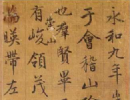 永和九年
于會稽山
也羣賢畢
有崇山峻領茂
湍暎帶左